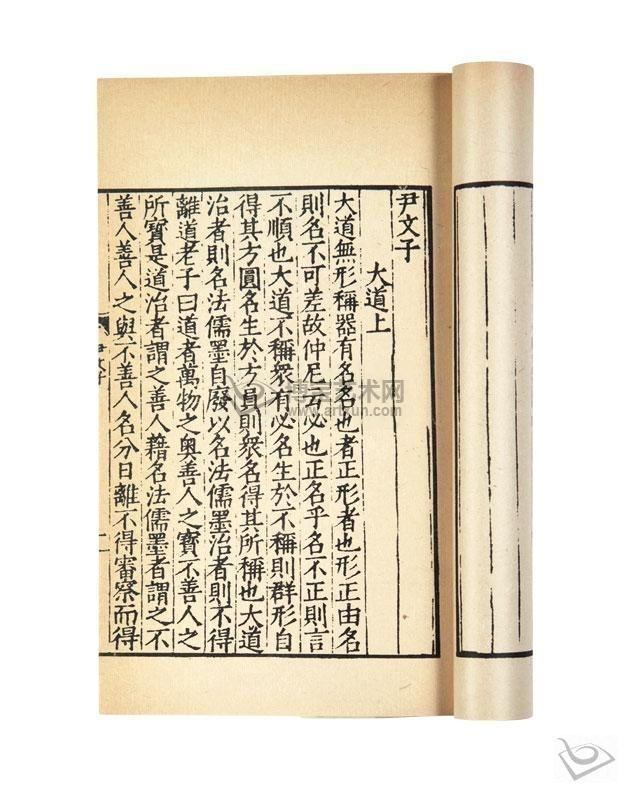 尹文子
大道上
大道無形稱器有名名也者正形者也形正由名
則名不可差故仲尼云必也正名乎名不正則言
不順也大道不稱衆有必名生於不稱則群形自
得其方圓名生於方員則衆名得其所稱也大道
治者則名法儒墨自廢以名法儒墨治者則不得
離道老子曰道者萬物之奥善人之寶不善人之
所寶是道治者謂之善人藉名法儒墨者謂之不
善人善人之與不善人名分日離不得審察而得
尹文子
博宝艺术网
www.artxun.com